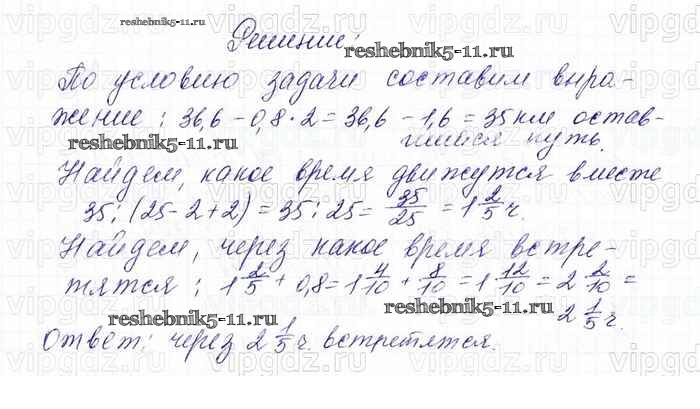 Решение:
По условию задачи составим выра-
жение: 36,6 - 0,8 · 2 = 36,6 - 1,6 = 35 км остав-
шийся путь.
Найдем, какое время движутся вместе
35 : (25 - 2 + 2) = 35 : 25 = 35/25 = 1 2/5 ч.
Найдем, через какое время встре-
тятся: 1 2/5 + 0,8 = 1 4/10 + 8/10 = 1 12/10 = 2 2/10 =
2 1/5 ч.
Ответ: через 2 1/5 ч. встретятся.
reshebnik5-11.ru
reshebnik5-11.ru
reshebnik5-11.ru
reshebnik5-11.ru
reshebnik5-11.ru